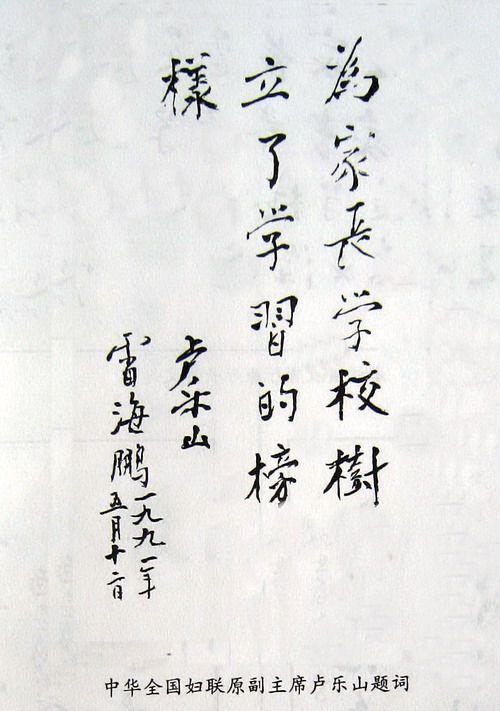 為家長学校樹
立了学習的榜
樣
卢乐山
雷海鹏
一九九一年
五月十二日
中华全国妇联原副主席卢乐山题词